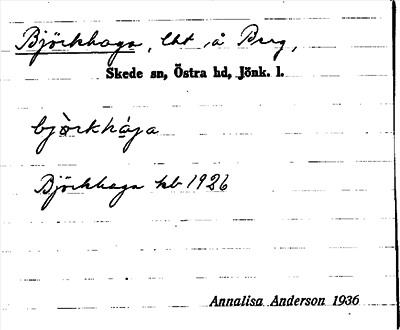 Björkhaga, lht å Berg,
Skede sn, Östra hd, Jönk. l.
bjò̀rkhåga
Björkhaga kb 1926
Annalisa Anderson 1936